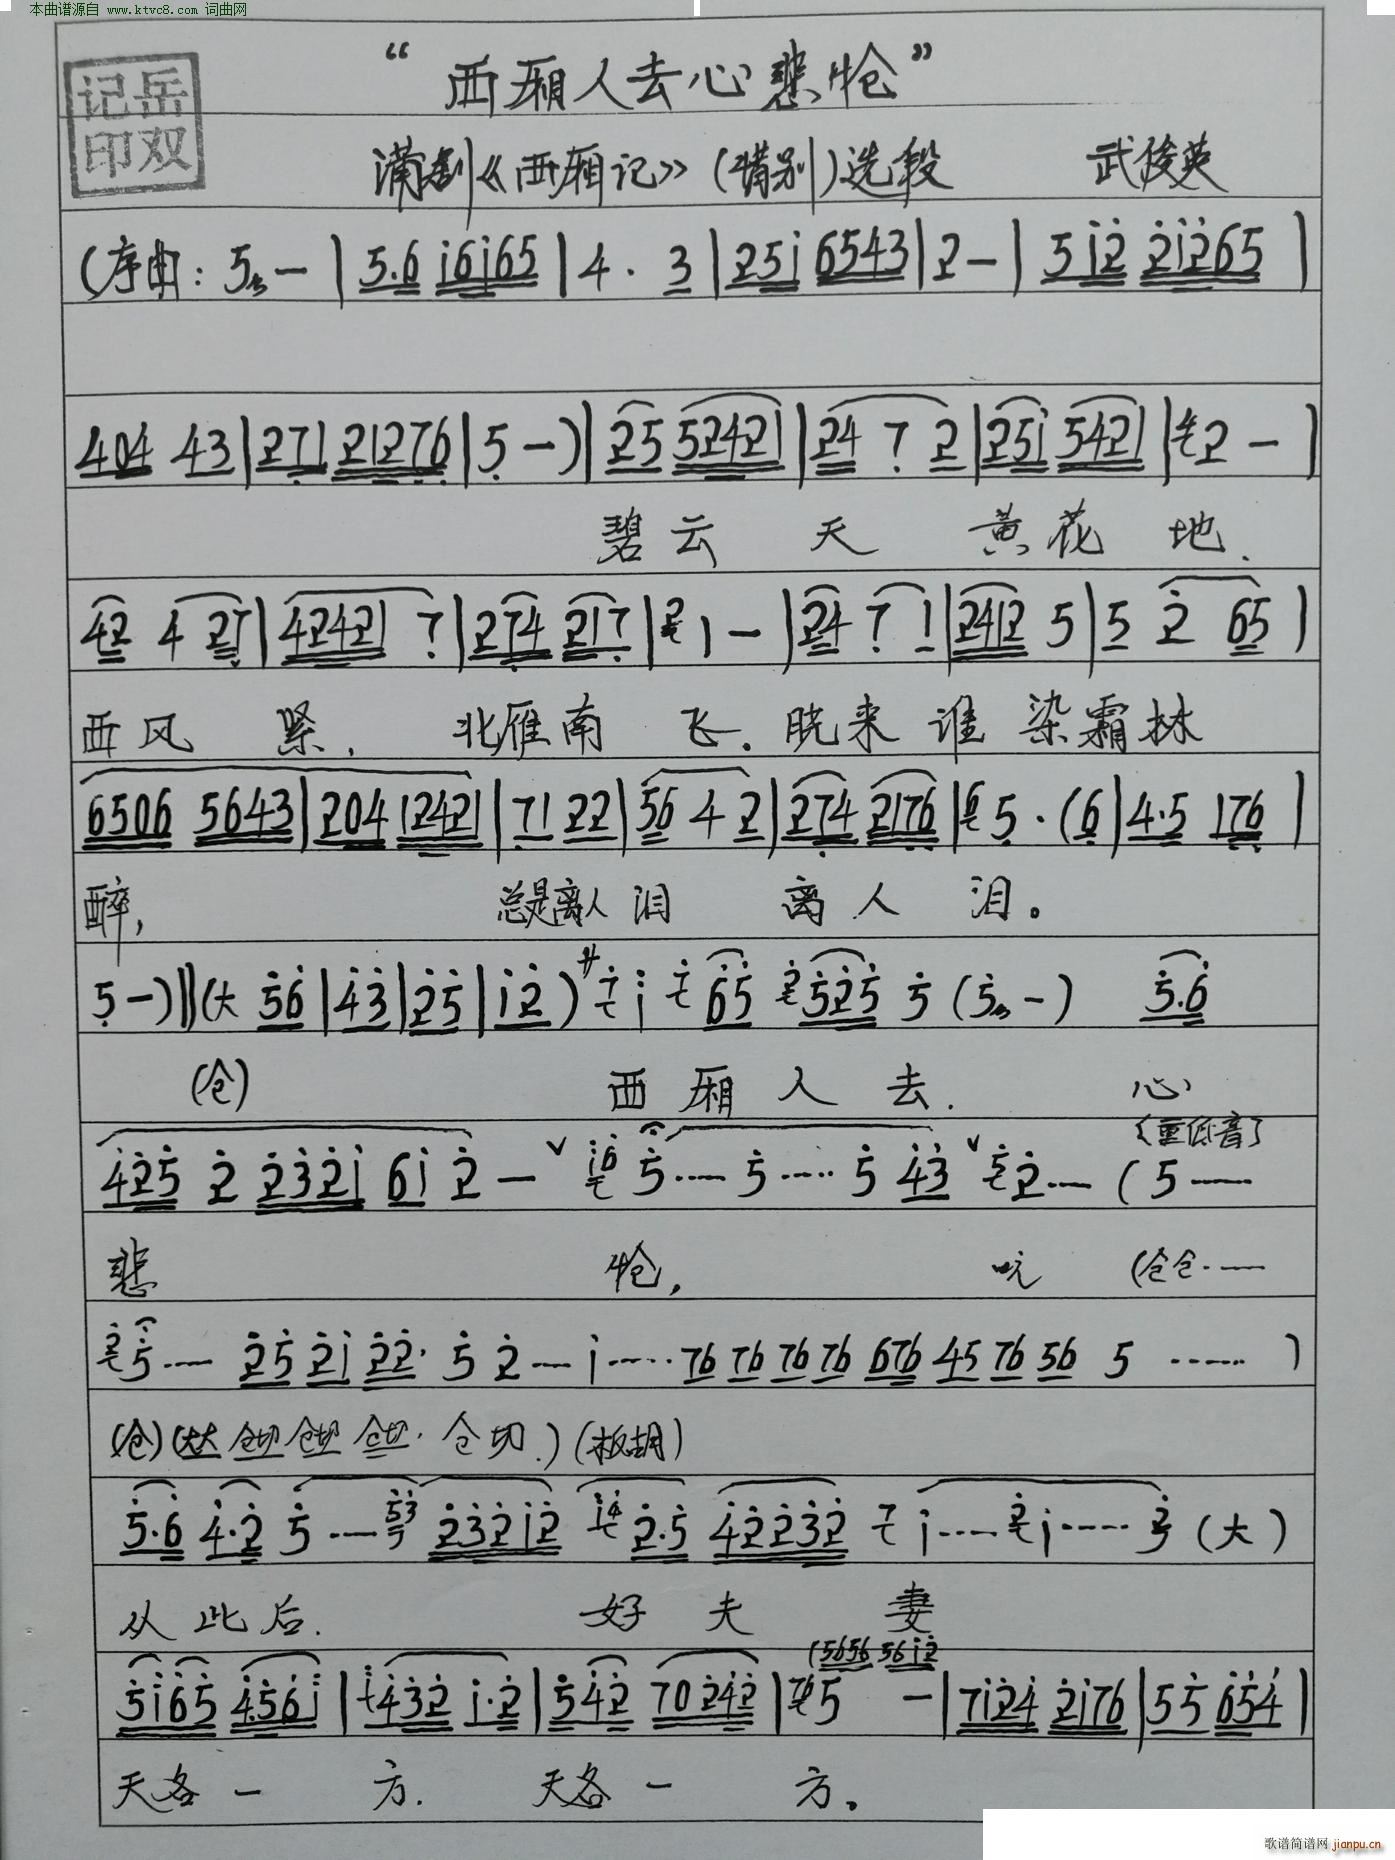 本曲谱源自 www.ktvc8.com 词曲网
记岳
印双
“西厢人去心悲怆”
蒲剧《西厢记》(惜别)选段 武俊英
(序曲: 5 — | 5.6 i6i65 | 4 . 3 | 25i 6543 | 2 — | 5i2 2i265 |
404 43 | 271 21276 | 5 —) | 25 52421 | 24 7 2 | 251 5421 | 2 — |
碧云 天 黄花 地.
42 4 27 | 42421 7 | 274 217 | 1 — | 24 7 1 | 2412 5 | 5 2 65 |
西风 紧, 北雁南 飞. 晓来 谁 染霜林
6506 5643 | 204 12421 | 71 22 | 56 4 2 | 274 2176 | 5 . (6 | 4.5 176 |
醉, 总是离人 泪 离 人 泪。
5 —)‖(大 56 | 43 | 25 | i2 ) サ i 65 525 5 (5 —) 5.6
(仓) 西 厢 人 去. 心
(重低音)
425 2 2321 6i 2 — ˅ 5…… 5…… 5 43 ˅ 2…… ( 5……
悲 怆, 吭 (仓仓……
5…… 25 2i 22. 5 2…… i…… 76 76 76 76 676 45 76 56 5 …… )
(仓)(大大 仓切 仓切 仓切. 仓 切.)(板胡)
5.6 4.2 5…… 232i2 2.5 42232 i…… i…… (大)
从 此 后. 好 夫 妻
(5656 56i2
5i65 456i | 432 i.2 | 542 70 242 | 5 — | 7i24 2i76 | 55 654 |
天各 一 方. 天各 一 方。
歌谱简谱网 jianpu.cn